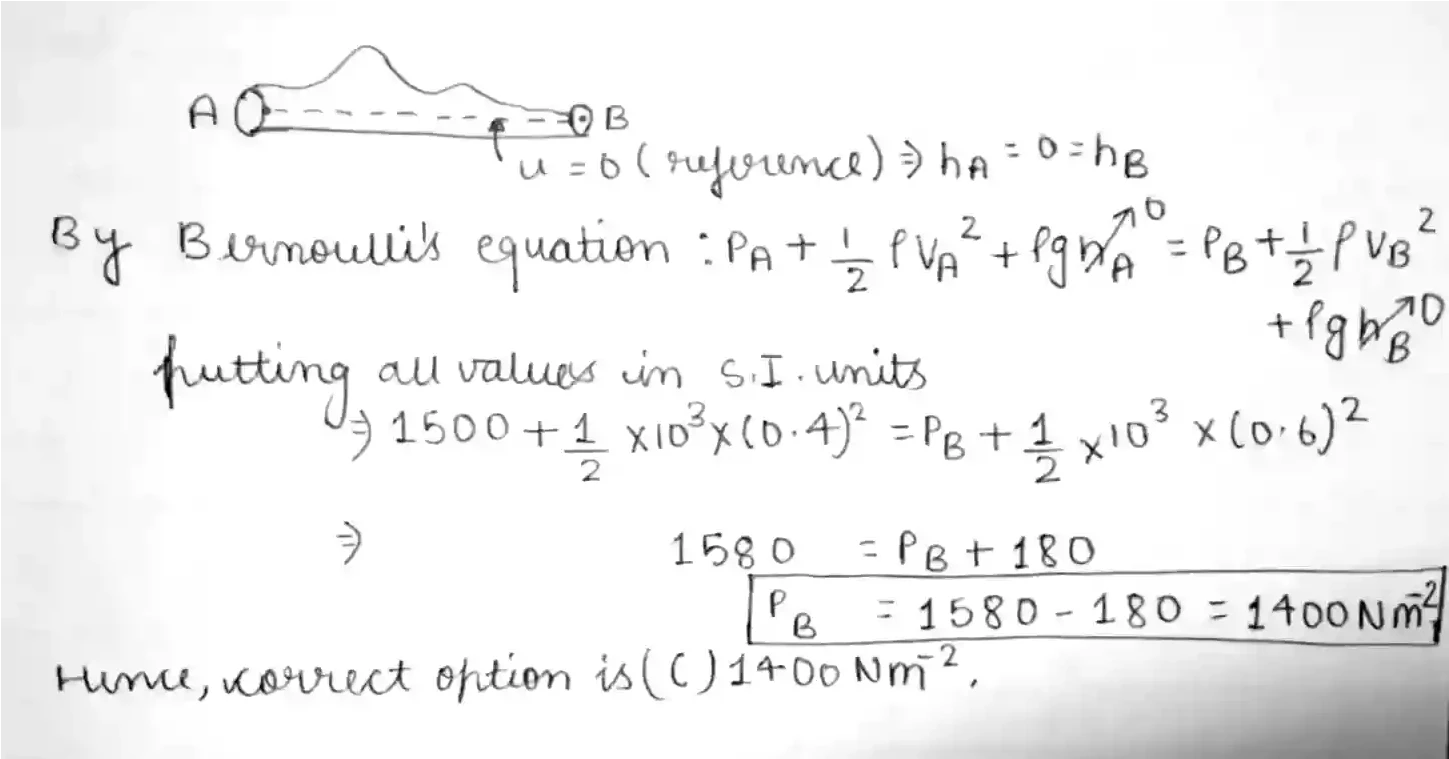 A B
u = 0 (reference) ⇒ hA = 0 = hB
By Bernoulli's equation : PA + 1/2 ρVA² + ρghA↗0 = PB + 1/2 ρVB²
+ ρghB↗0
putting all values in S.I. units
⇒ 1500 + 1/2 ×10³×(0.4)² = PB + 1/2 ×10³ × (0.6)²
⇒ 1580 = PB + 180
PB = 1580 - 180 = 1400 Nm⁻²
Hence, correct option is (C) 1400 Nm⁻².